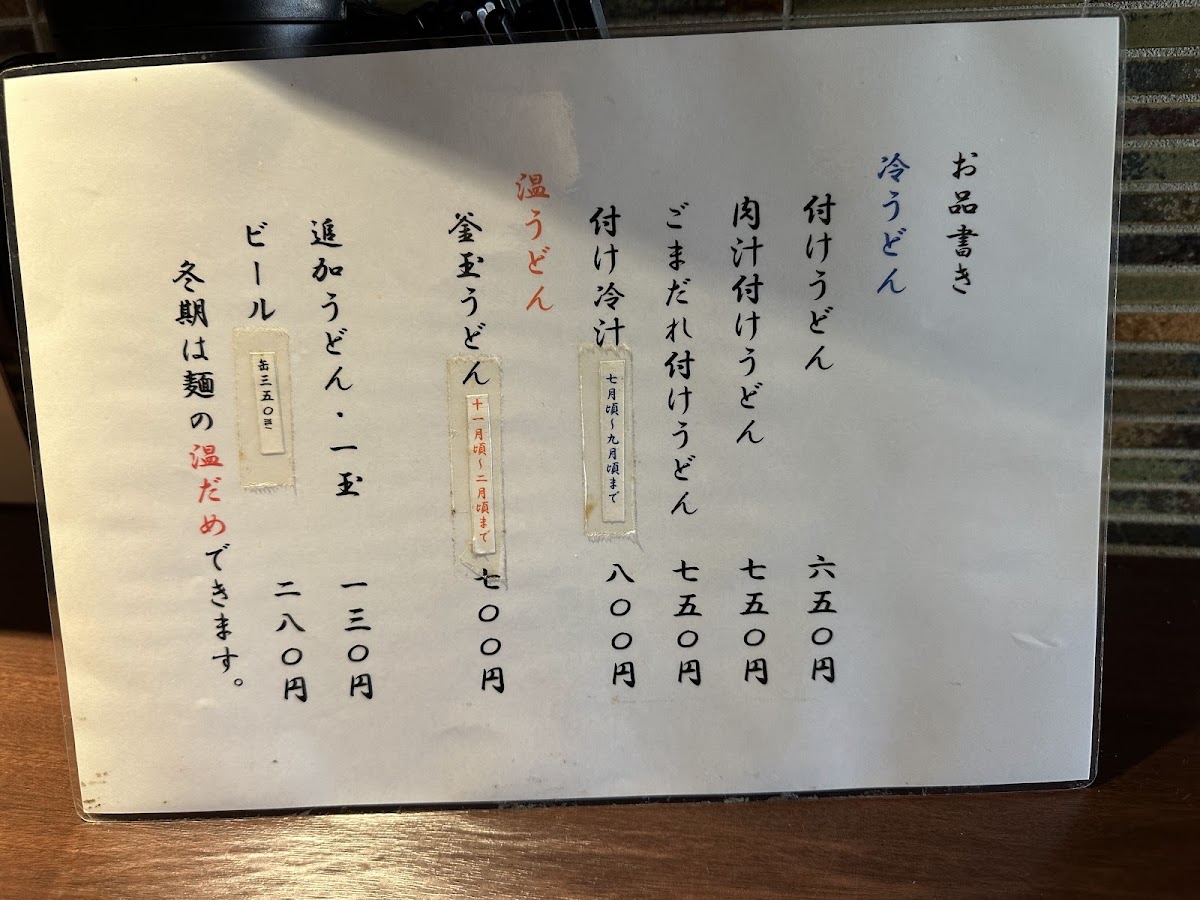 お品書き
冷うどん
付けうどん 六五〇円
肉汁付けうどん 七五〇円
ごまだれ付けうどん 七五〇円
付け冷汁 七月頃~九月頃まで 八〇〇円
温うどん
釜玉うどん 十一月頃~二月頃まで 七〇〇円
追加うどん・一玉 一三〇円
ビール 缶三五〇㎖ 二八〇円
冬期は麺の温だめできます。